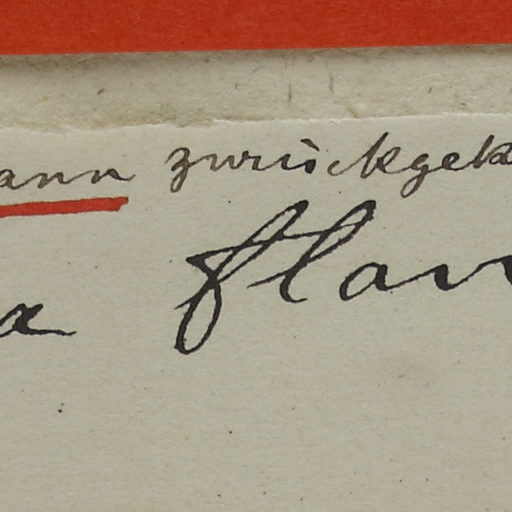 ann zurückgek
a flan